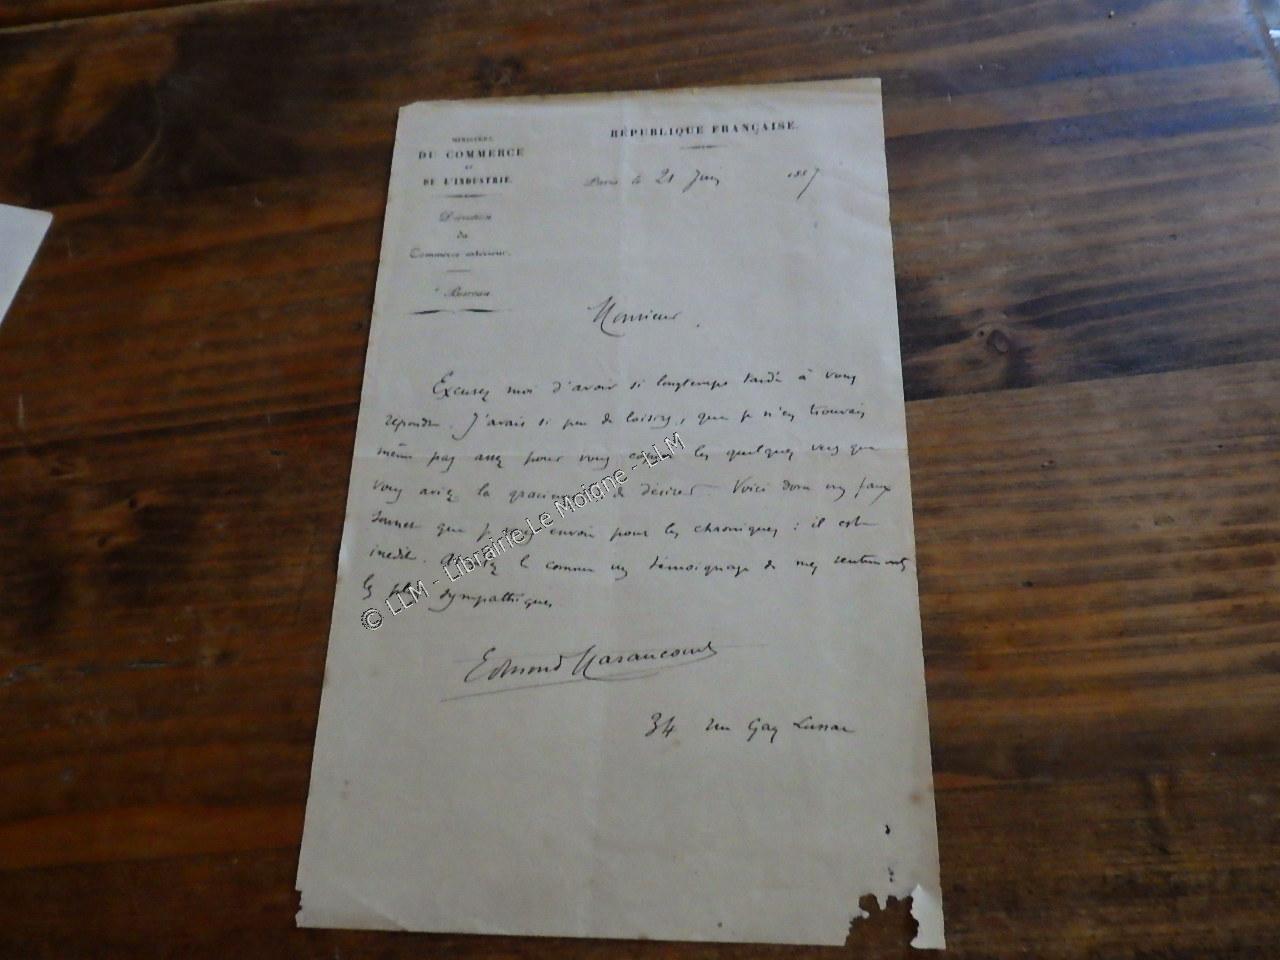 MINISTÈRE
DU COMMERCE
ET
DE L'INDUSTRIE.
Direction
du
Commerce intérieur.
e Bureau
RÉPUBLIQUE FRANÇAISE.
Paris le 21 Juin 1887
Monsieur
Excusez moi d'avoir si longtemps tardé à vous
répondre. J'avais si peu de loisirs, que je n'en trouvais
même pas assez pour vous copier les quelques vers que
vous aviez la de désirer. Voici donc un
sonnet que je vous envoie pour les chroniques : il est
inédit. le comme un témoignage de mes sentiments
les plus sympathiques
Edmond Haraucourt
34 rue Gay Lussac
© LLM - Librairie Le Moigne - LLM